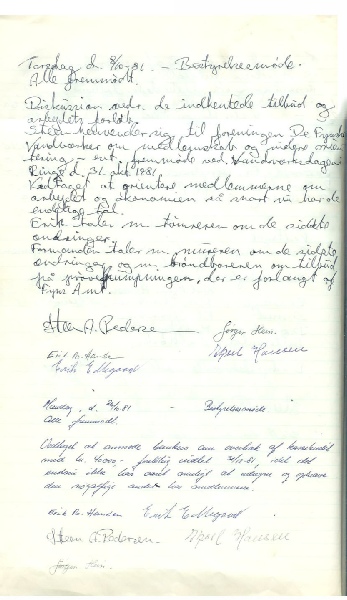 Torsdag d. 8/10-81. - Bestyrelsesmøde.
Alle fremmødt.
Diskussion vedr. de indhentede tilbud og
arbejdets forløb.
Steen henvender sig til foreningen De Fynske
Vandværker om medlemskab og videre orien
tering - evt. fremmøde ved Vandværksdagen i
Ringe d. 31. okt. 1981
Vedtaget at orientere medlemmerne om
arbejdet og økonomien så snart vi har de
endelige tal.
Erik taler m. tømreren om de sidste
ændringer.
Formanden taler m. mureren om de sidste
ændringer og m. brøndboreren om tilbud
på prøvepumpningen, der er forlangt af
Fyns Amt.
Steen A. Pedersen
Jørgen Hein.
Erik B. Hansen
Axel Hansen
Erik Ellegaard
Mandag d. /10-81 - Bestyrelsesmøde
Alle fremmødt.
Vedtaget at anmode banken om overtræk af
med kr. - indtil -81, idet det
endnu ikke har været muligt at og
den
Erik B. Hansen Erik Ellegaard
Steen A. Pedersen. Axel Hansen
Jørgen Hein.